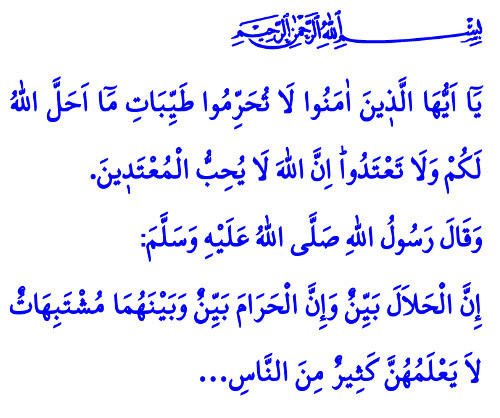 بِسْمِ اللهِ الرَّحْمٰنِ الرَّحِيمِ
يَٓا اَيُّهَا الَّذ۪ينَ اٰمَنُوا لَا تُحَرِّمُوا طَيِّبَاتِ مَٓا اَحَلَّ اللهُ
لَكُمْ وَلَا تَعْتَدُواۜ اِنَّ اللهَ لَا يُحِبُّ الْمُعْتَد۪ينَ.
وَقَالَ رَسُولُ اللهِ صَلَّى اللهُ عَلَيْهِ وَسَلَّمَ:
إِنَّ الْحَلاَلَ بَيِّنٌ وَإِنَّ الْحَرَامَ بَيِّنٌ وَبَيْنَهُمَا مُشْتَبِهَاتٌ
لاَ يَعْلَمُهُنَّ كَثِيرٌ مِنَ النَّاسِ...